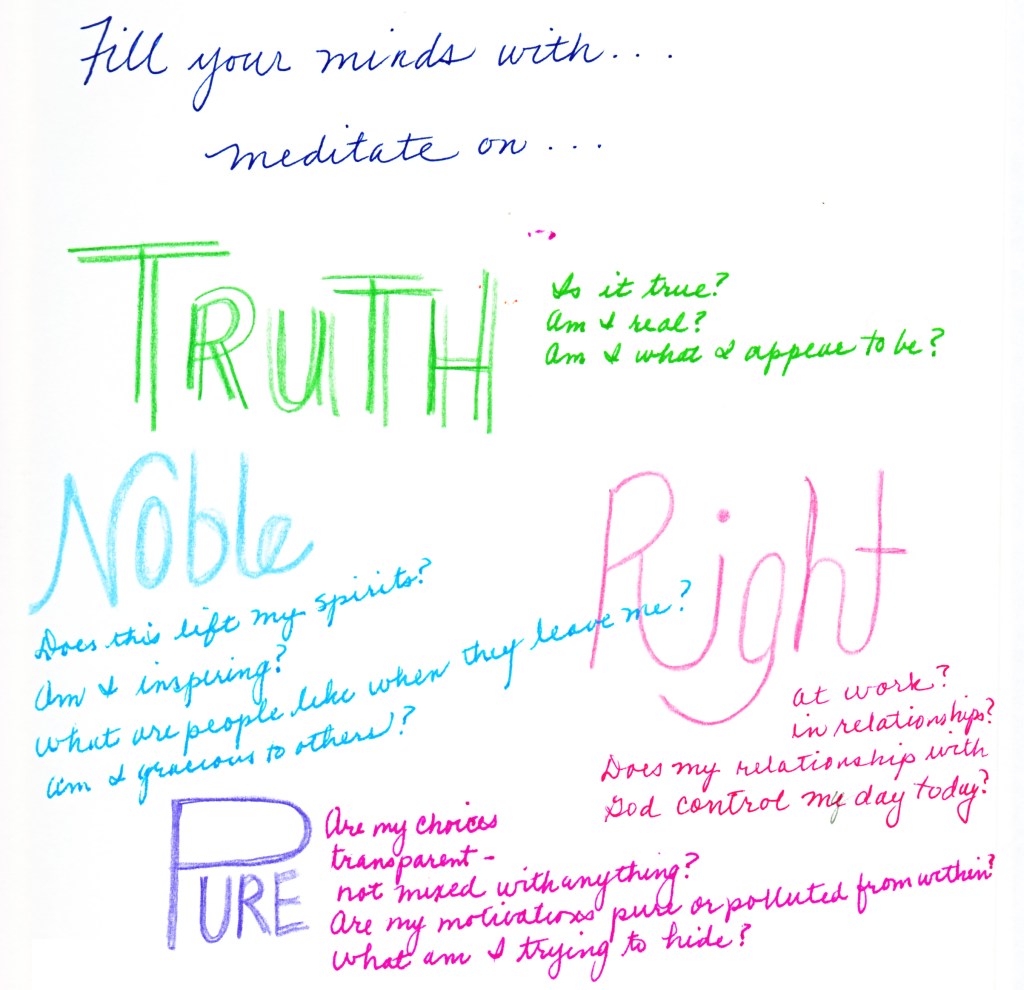 Fill your minds with...
meditate on...
TRUTH
Is it true?
Am I real?
Am I what I appear to be?
Noble
Does this lift my spirits?
Am I inspiring?
What are people like when they leave me?
Am I gracious to others?
Right
at work?
in relationships?
Does my relationship with
God control my day today?
PURE
Are my choices
transparent -
not mixed with anything?
Are my motivations pure or polluted from within?
What am I trying to hide?